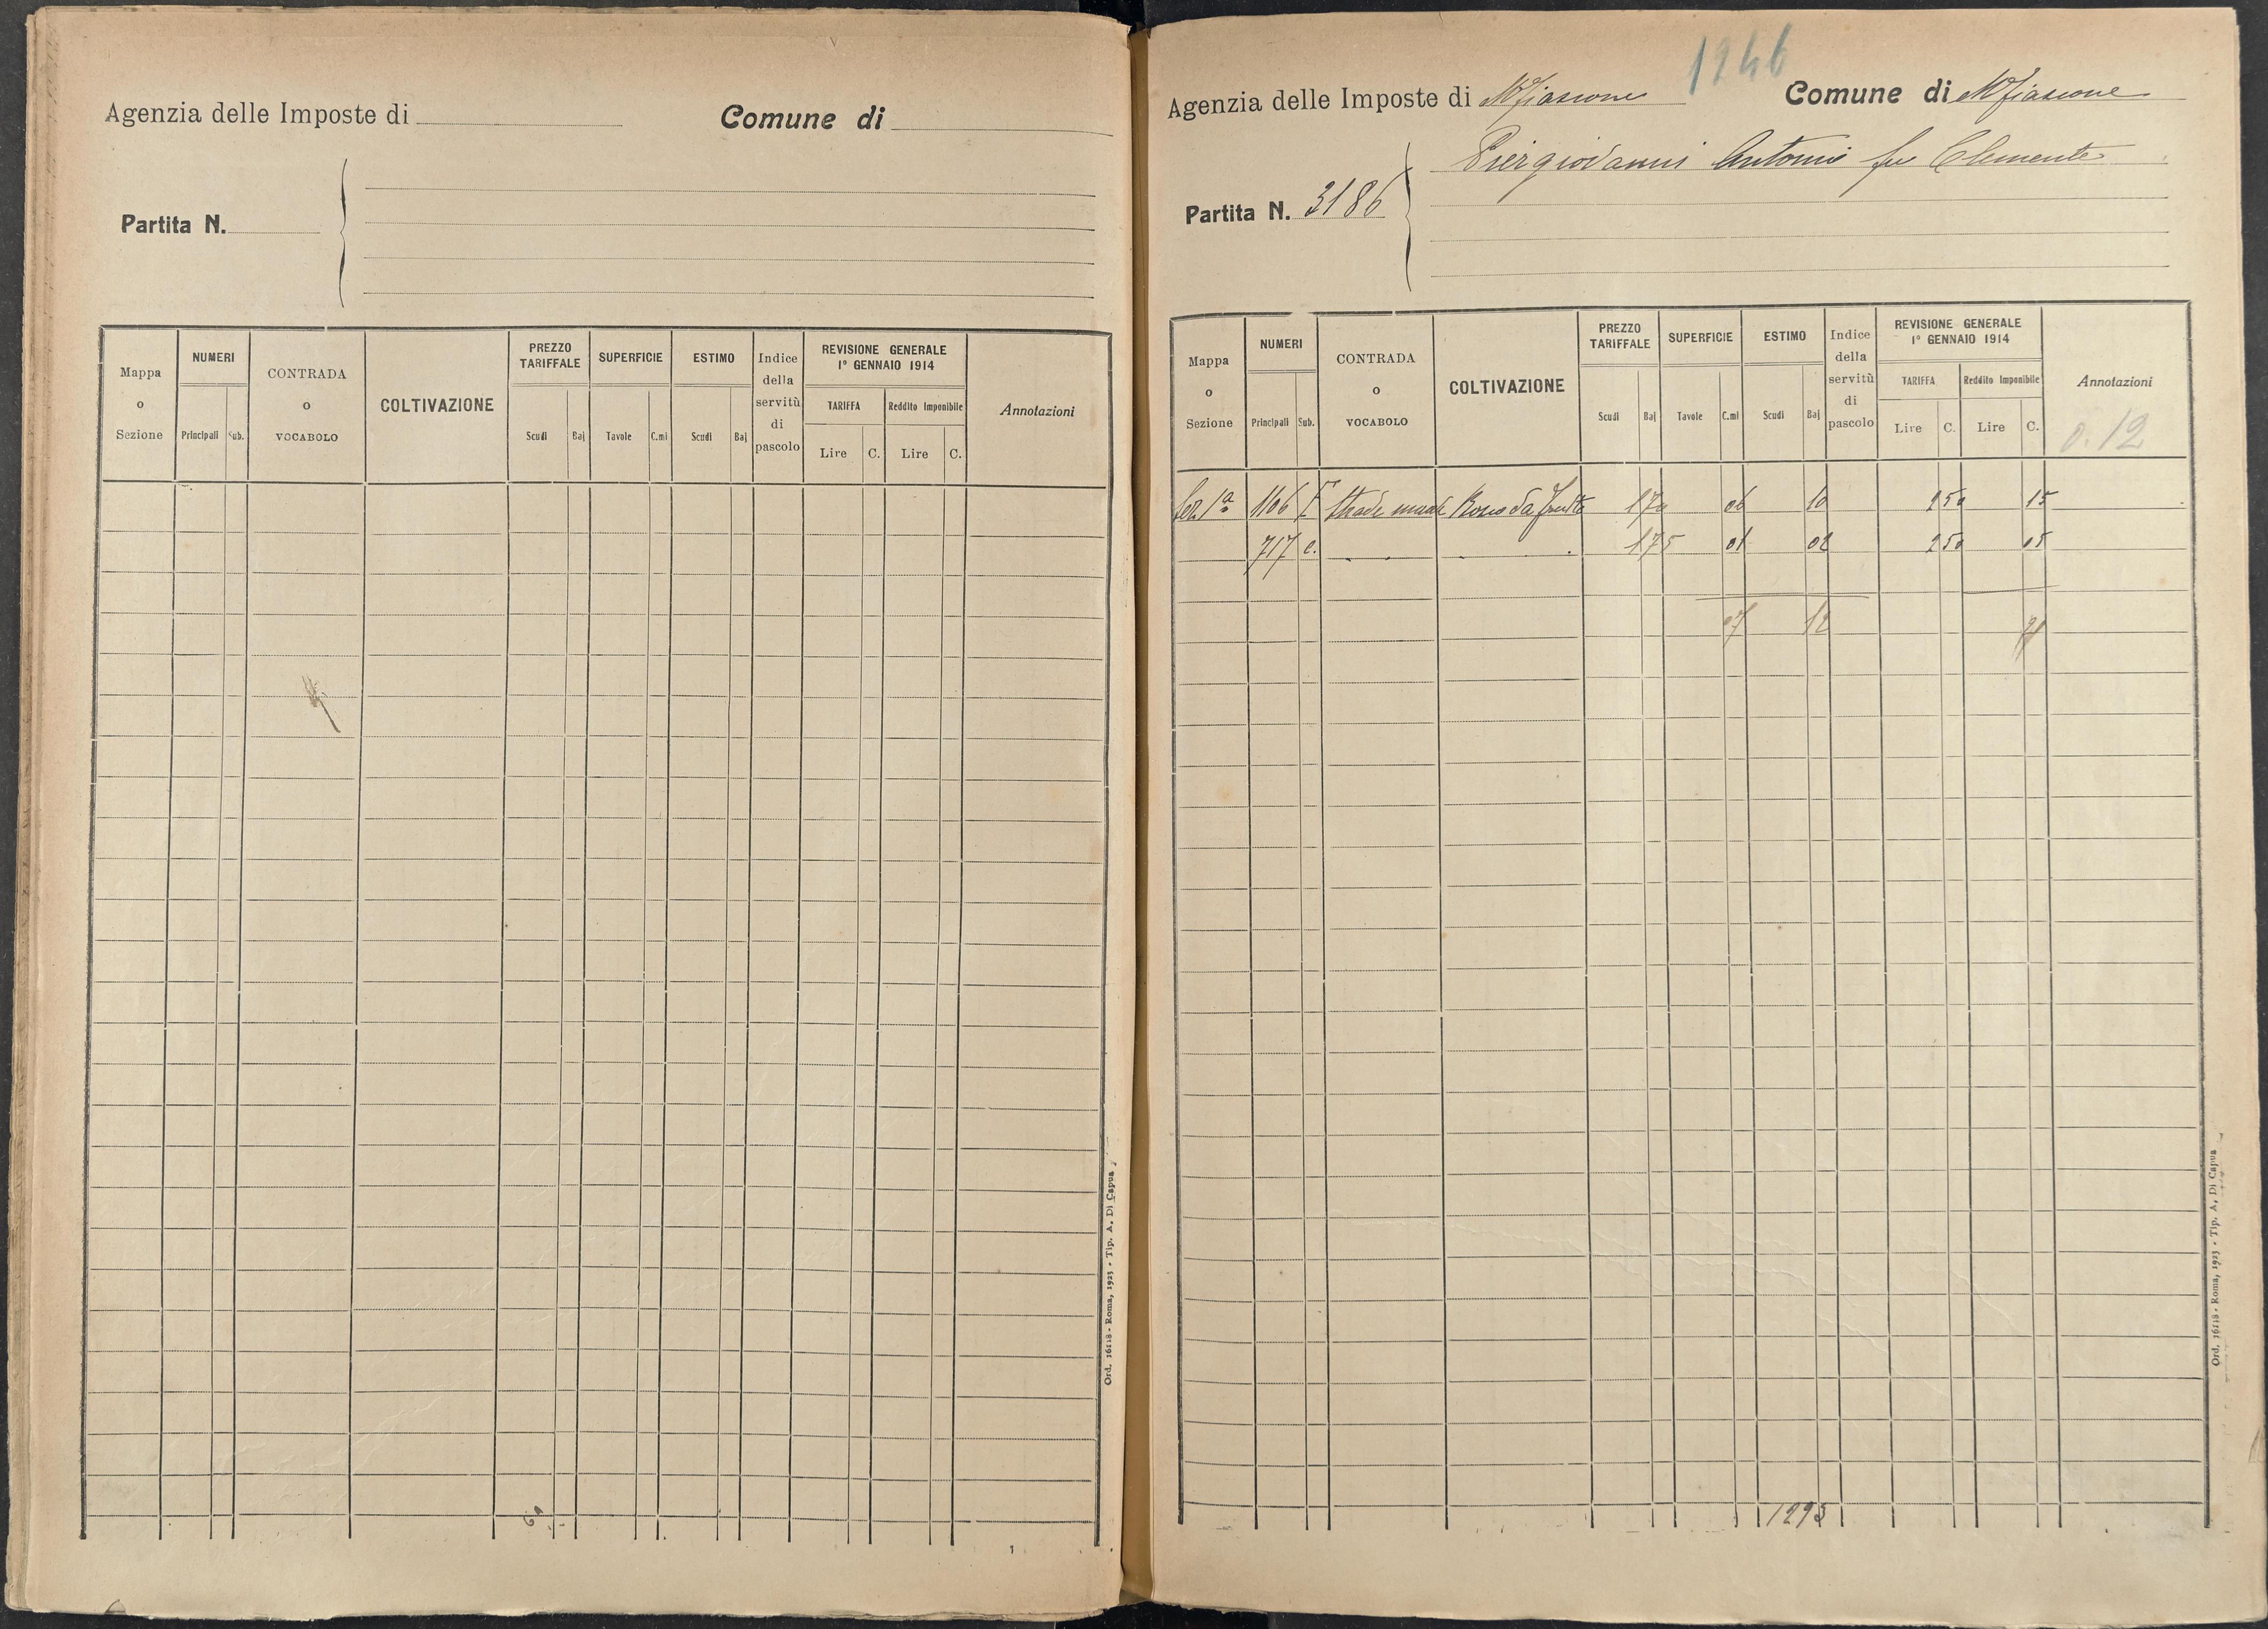 Agenzia delle Imposte di
Comune di
Partita N.
Mappa o Sezione
NUMERI
Principali
Sub.
CONTRADA o VOCABOLO
COLTIVAZIONE
PREZZO TARIFFALE
Scudi
Baj
SUPERFICIE
Tavole
C.mi
ESTIMO
Scudi
Baj
Indice della servitù di pascolo
REVISIONE GENERALE 1° GENNAIO 1914
TARIFFA
Lire
C.
Reddito Imponibile
Lire
C.
Annotazioni
Ord. 16118 - Roma, 1923 - Tip. A. Di Capua
1246
Agenzia delle Imposte di Mfiascone
Comune di Mfiascone
Piergiovanni Antonio fu Clemente
Partita N. 3186
Mappa o Sezione
NUMERI
Principali
Sub.
CONTRADA o VOCABOLO
COLTIVAZIONE
PREZZO TARIFFALE
Scudi
Baj
SUPERFICIE
Tavole
C.mi
ESTIMO
Scudi
Baj
Indice della servitù di pascolo
REVISIONE GENERALE 1° GENNAIO 1914
TARIFFA
Lire
C.
Reddito Imponibile
Lire
C.
Annotazioni
0.12
Sez 1ª 1106 170 06 10 250 15
717 175 01 02 250 05
07 12
1293
Ord. 16118 - Roma, 1923 - Tip. A. Di Capua